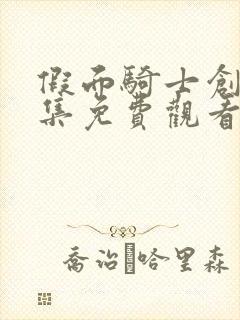 假面騎士創
集免費觀看
喬治·哈里森